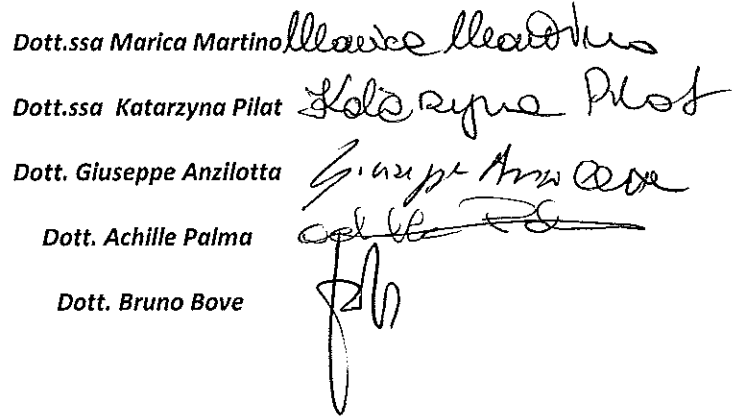 Dott.ssa Marica Martino Marica Martino
Dott.ssa Katarzyna Pilat Katarzyna Pilat
Dott. Giuseppe Anzilotta Giuseppe
Dott. Achille Palma
Dott. Bruno Bove